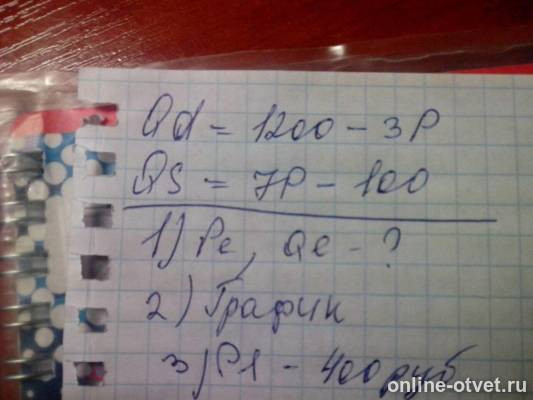 Qd = 1200 - 3P
QS = 7P - 100
1) Pe, Qe - ?
2) График
3) P1 - 400 руб
online-otvet.ru